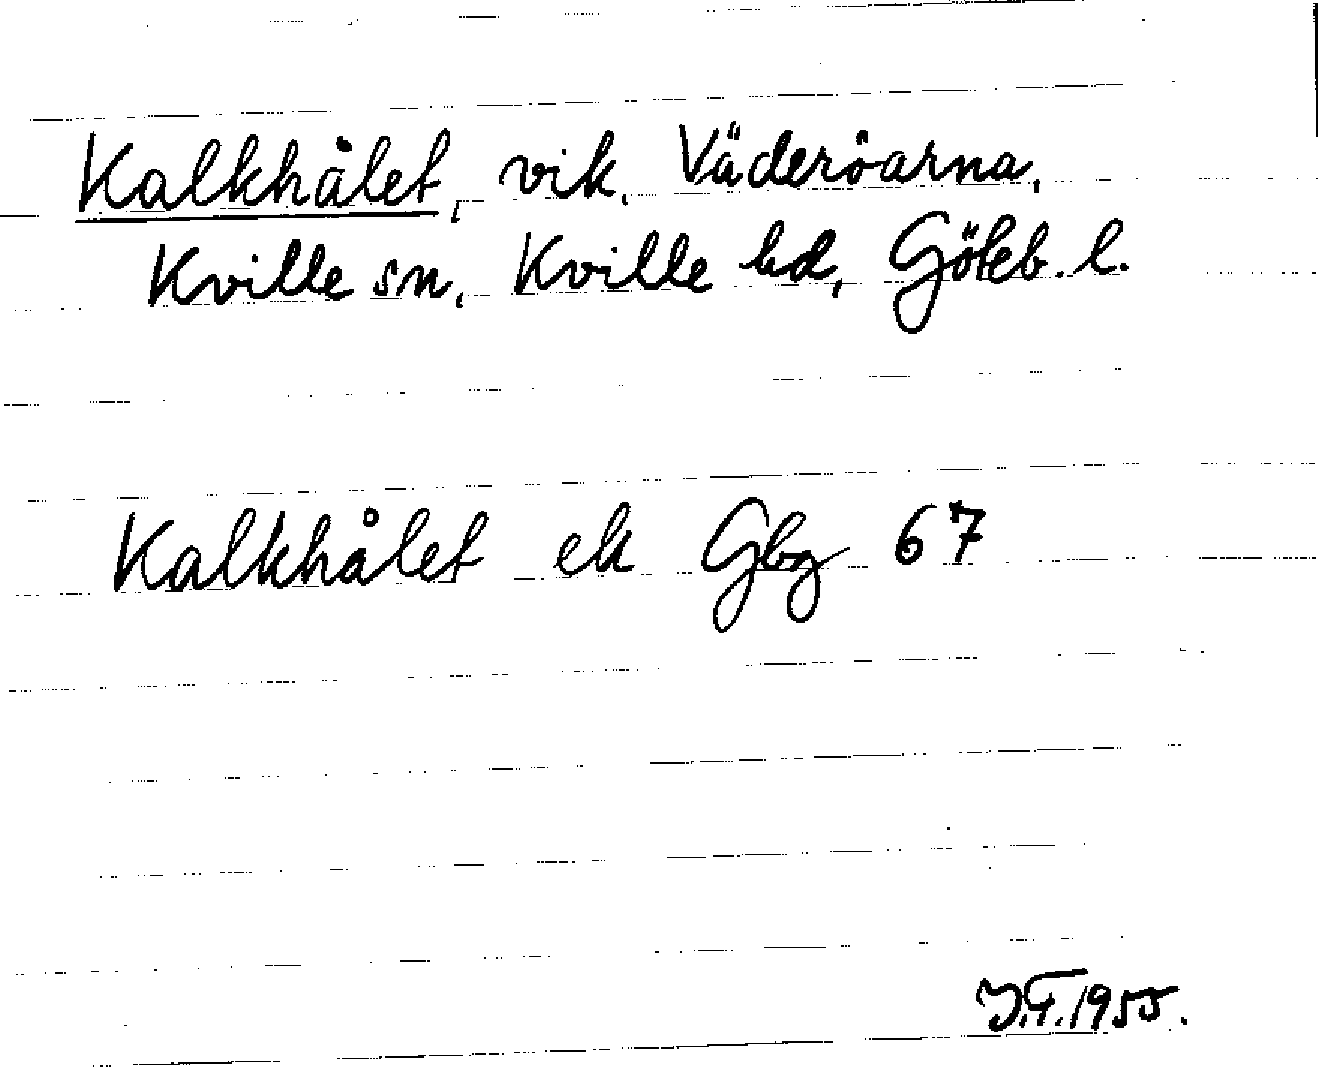 Kalkhålet, vik, Väderöarna,
Kville sn, Kville hd, Göteb. l.
Kalkhålet ek Gbg 67
J.T. 1955.